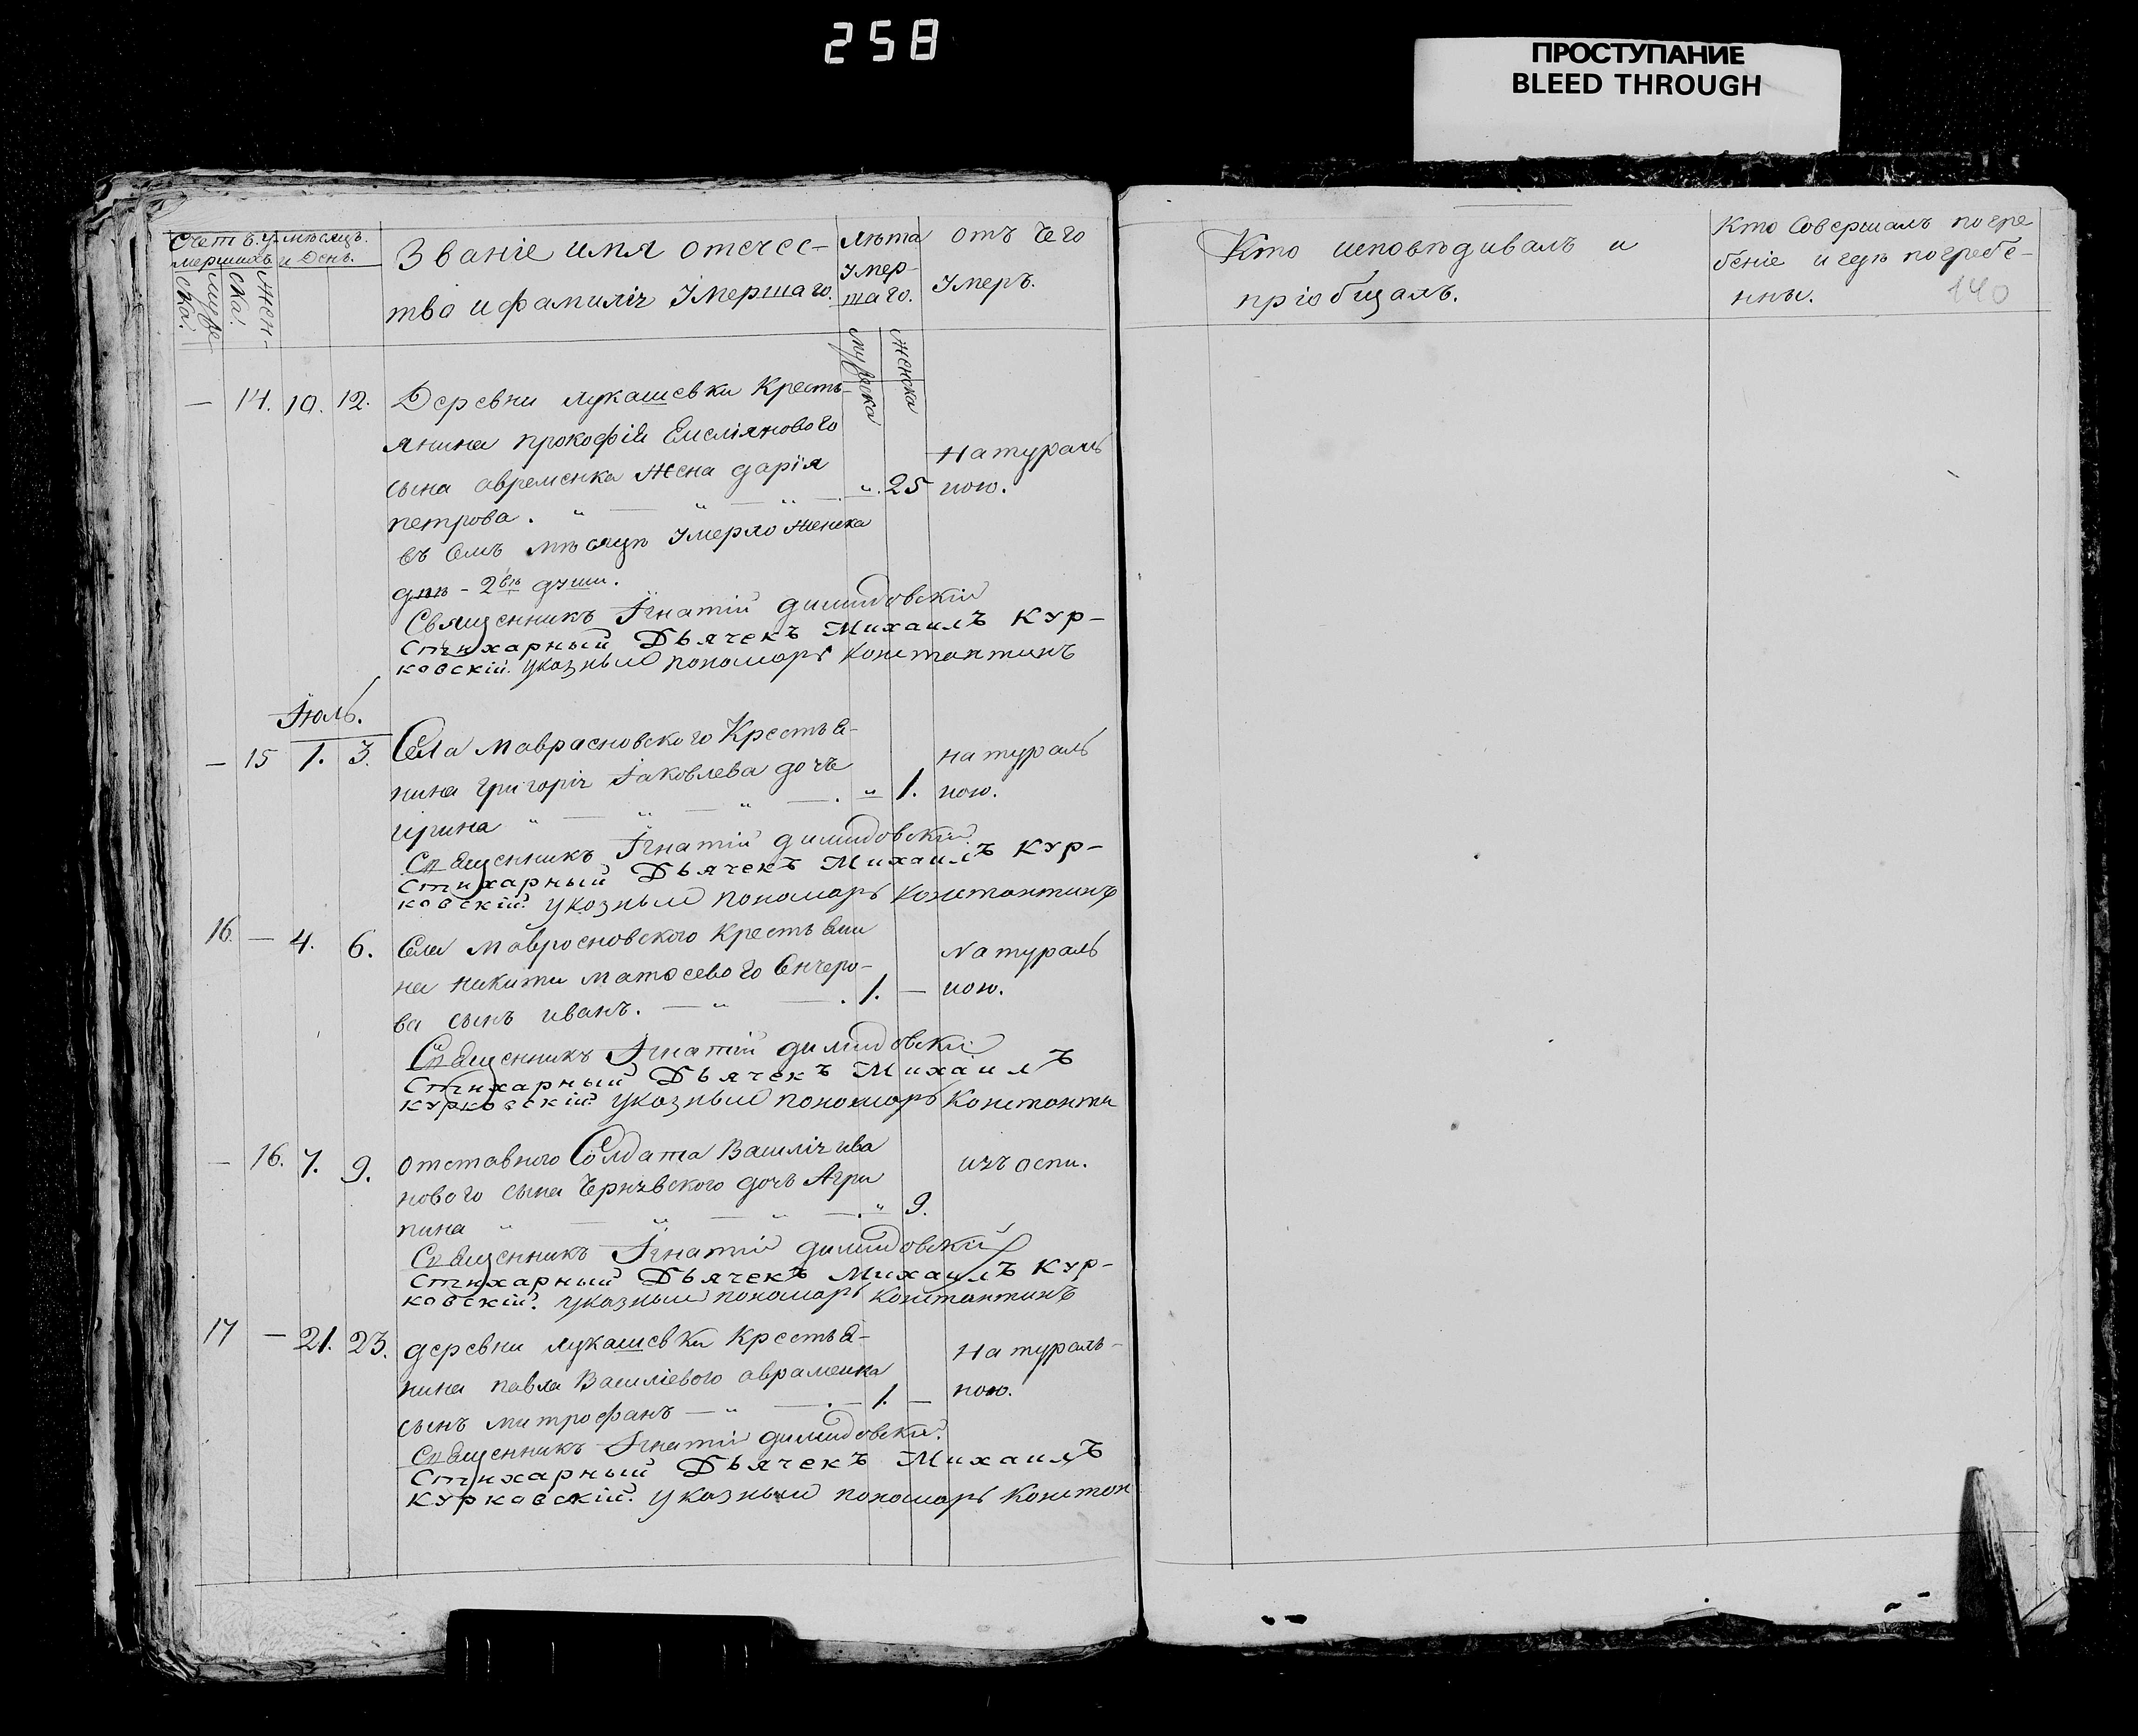 258
ПРОСТУПАНИЕ
BLEED THROUGH
Счетъ умершихъ
мѣсяцъ и день.
мужеска!
женска!
Званіе имя отечес-
тво и фамиліи Умершаго.
лѣта
Умер-
шаго.
мужеска
женска
отъ Чего
Умеръ.
Кто исповѣдивалъ и
пріобщалъ.
Кто Совершалъ погре
беніе и гдѣ погребе-
нны.
140
— 14. 10. 12. Деревни лукашевки Кресть-
янина прокофій Емеліянового
сына авременка Жена дарія
петрова. 25 Натураль
ною.
въ Семъ мѣсяцѣ Умерло женска
двѣ - 2вѣ души.
Священникъ Игнатій
Стихарный Дьячекъ Михаилъ Кур-
ковскій. указный пономарь Константинъ
Іюль.
— 15 1. 3. Села Маврасновского Крестья-
нина григоріи Іаковлева дочь
ирина 1. натураль
ною.
Священникъ Игнатій
Стихарный Дьячекъ Михаилъ Кур-
ковскій. указный пономарь Константинъ
16. — 4. 6. Села Мавросновского Крестьяни
на никиты матосевого
ва сынъ иванъ. 1. — Натураль
ною.
Священникъ Игнатій
Стихарный Дьячекъ Михаилъ
Курковскій. указный пономарь Константи
— 16. 7. 9. отставного Солдата Василіи ива
нового сына Чернѣвского дочь Агри
пина 9. изъ оспи.
Священникъ Игнатій
Стихарный Дьячекъ Михаилъ Кур-
ковскій. указный пономарь Константинъ
17 — 21. 23. деревни лукашевки Крестья-
нина павла Василіевого авраменка
сынъ митрофанъ 1. — Натураль-
ною.
Священникъ Игнатій
Стихарный Дьячекъ Михаилъ
Курковскій. указный пономарь Констан